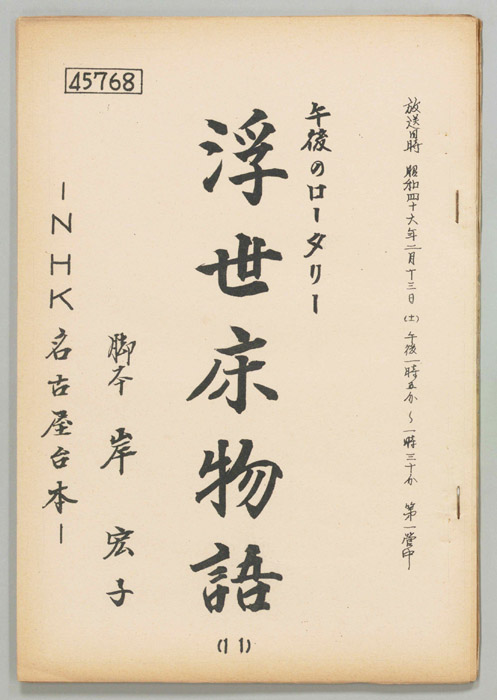 45768
放送日時 昭和四十六年二月十三日(土)午後一時五分~一時三十分 第一管中
午後のロータリー
浮世床物語
(11)
脚本 岸 宏子
―NHK名古屋台本―